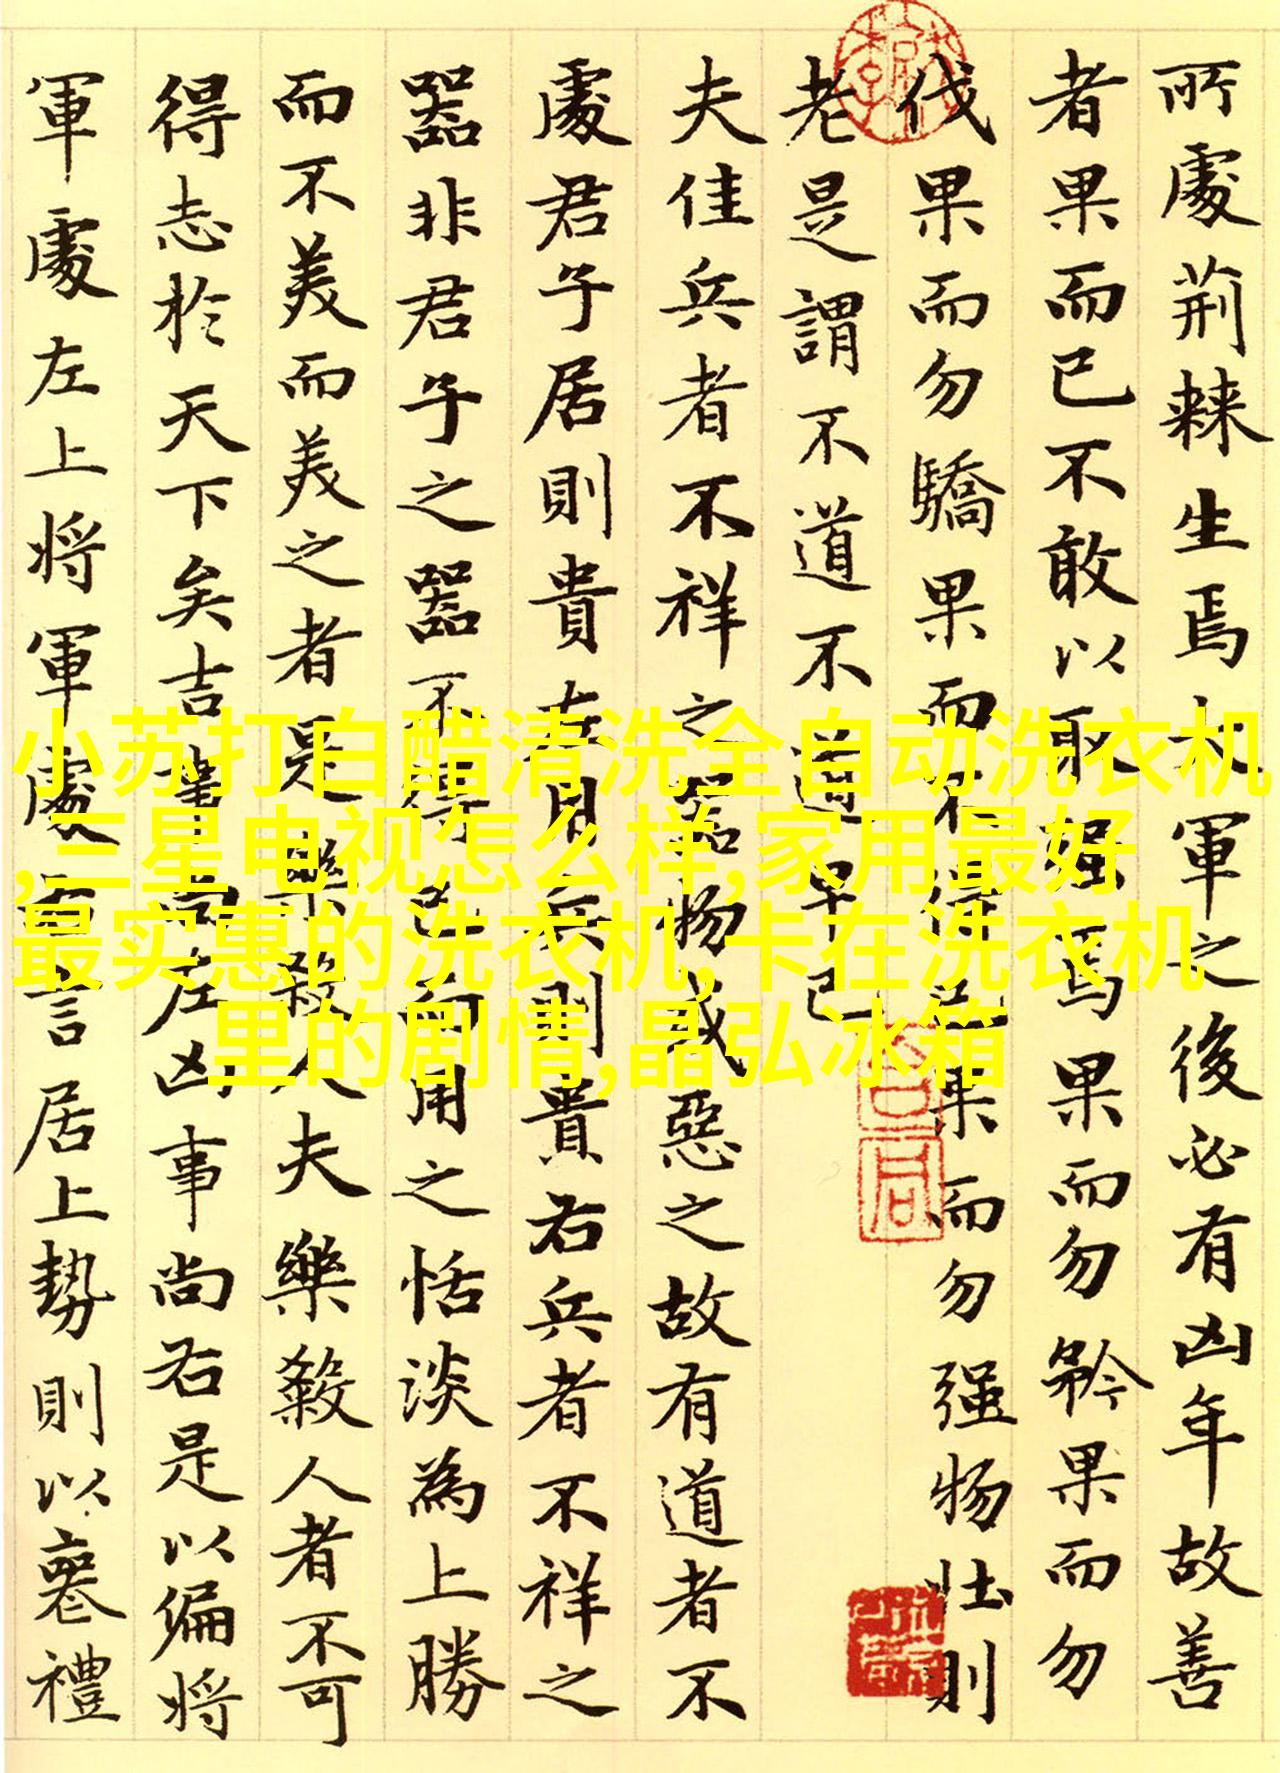 所處荊棘生焉大軍之後必有凶年故善
者果而已不敢以取强焉果而勿矜果而勿
伐果而勿驕果而不得已果而勿强物壮則
老是謂不道不道早已
夫佳兵者不祥之器物或惡之故有道者不
處君子居則貴左用兵則貴右兵者不祥之
器非君子之器不得已而用之恬淡為上勝
而不美而美之者是樂殺人夫樂殺人者不可
得志於天下矣吉事尚左凶事尚右是以偏將
軍處左上將軍處右言居上勢則以喪禮
小苏打白醋清洗全自动洗衣机
,三星电视怎么样,家用最好
最实惠的洗衣机,卡在洗衣机
里的剧情,晶弘冰箱